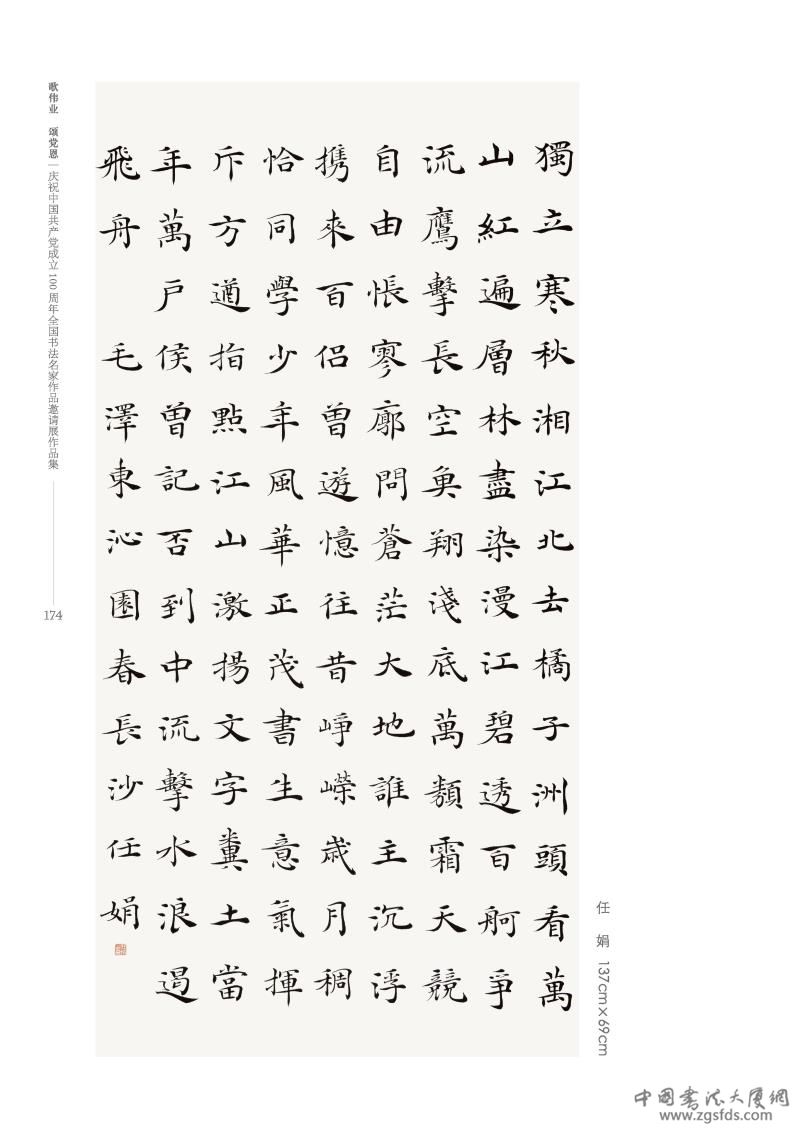 獨立寒秋湘江北去橘子洲頭看萬
山紅遍層林盡染漫江碧透百舸爭
流鷹擊長空魚翔淺底萬類霜天競
自由悵寥廓問蒼茫大地誰主沉浮
携來百侶曾遊憶往昔崢嶸歲月稠
恰同學少年風華正茂書生意氣揮
斥方遒指點江山激揚文字糞土當
年萬戶侯曾記否到中流擊水浪遏
飛舟 毛澤東沁園春長沙任娟
歌伟业 颂党恩|庆祝中国共产党成立100周年全国书法名家作品邀请展作品集
174
任 娟 137cm×69cm
中国书法大厦網
www.zgsfds.com